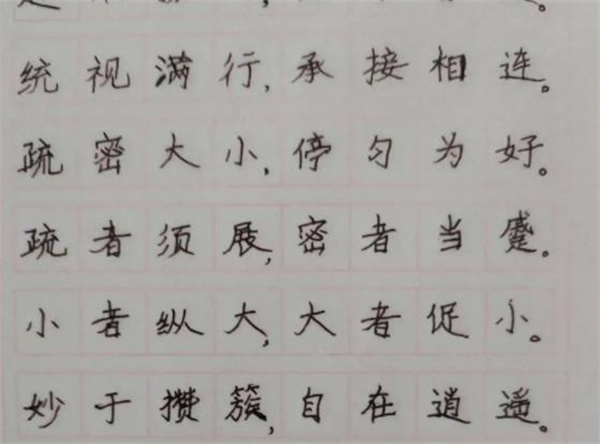 统视满行,承接相连。
疏密大小,停匀为好。
疏者须展,密者当蹙。
小者纵大,大者促小。
妙于攒簇,自在逍遥。